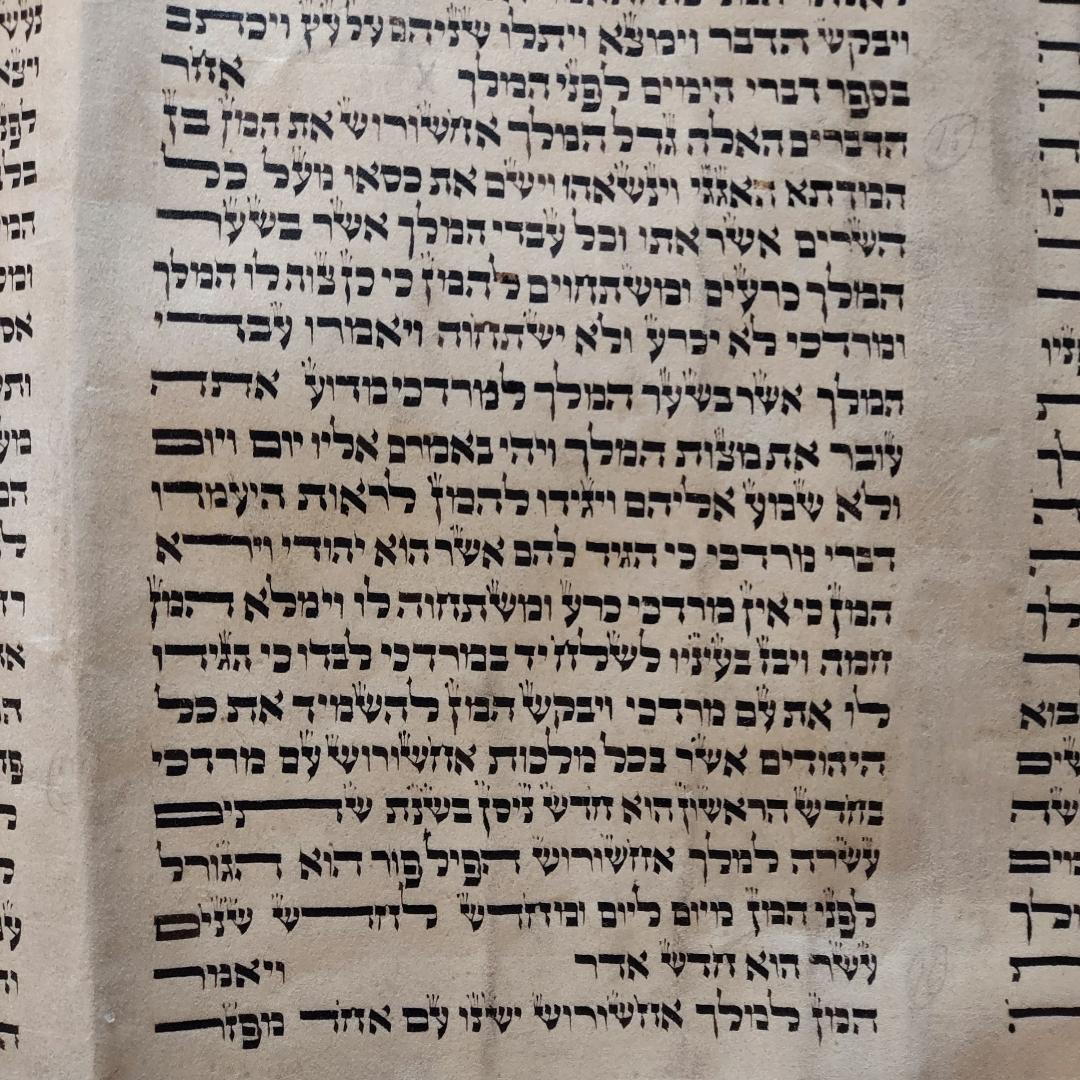 ויבקש הדבר וימצא ויתלו שניהם על עץ ויכתב
בספר דברי הימים לפני המלך אחר
הדברים האלה גדל המלך אחשורוש את המן בן
המדתא האגגי וינשאהו וישם את כסאו מעל כל
השרים אשר אתו וכל עבדי המלך אשר בשער
המלך כרעים ומשתחוים להמן כי כן צוה לו המלך
ומרדכי לא יכרע ולא ישתחוה ויאמרו עבדי
המלך אשר בשער המלך למרדכי מדוע אתה
עובר את מצות המלך ויהי באמרם אליו יום ויום
ולא שמע אליהם ויגידו להמן לראות היעמדו
דברי מרדכי כי הגיד להם אשר הוא יהודי וירא
המן כי אין מרדכי כרע ומשתחוה לו וימלא המן
חמה ויבז בעיניו לשלח יד במרדכי לבדו כי הגידו
לו את עם מרדכי ויבקש המן להשמיד את כל
היהודים אשר בכל מלכות אחשורוש עם מרדכי
בחדש הראשון הוא חדש ניסן בשנת שתים
עשרה למלך אחשורוש הפיל פור הוא הגורל
לפני המן מיום ליום ומחדש לחדש שנים
עשר הוא חדש אדר ויאמר
המן למלך אחשורוש ישנו עם אחד מפזר